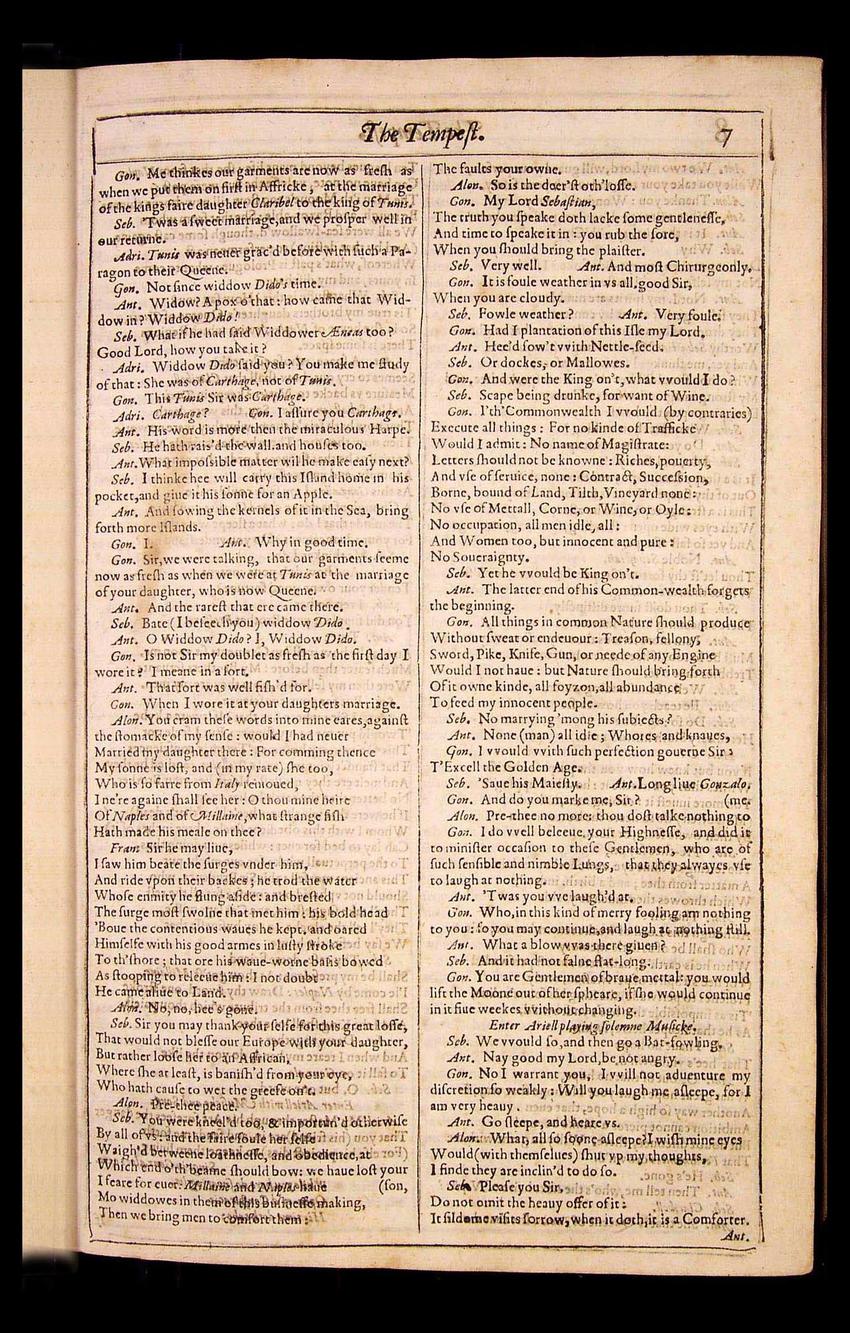 The Tempeſt. 7
Gon. Me thinkes our garments are now as freſh as
when we put them on firſt in Affricke, at the marriage
of the kings faire daughter Claribel to the king of Tunis.
Seb. 'Twas a ſweet marriage, and we proſper well in
our returne.
Adri. Tunis was neuer grac'd before with ſuch a Pa-
ragon to their Queene.
Gon. Not ſince widdow Dido's time.
Ant. Widow? A pox o'that: how came that Wid-
dow in? Widdow Dido!
Seb. What if he had ſaid Widdower Æneas too?
Good Lord, how you take it?
Adri. Widdow Dido ſaid you? You make me ſtudy
of that: She was of Carthage, not of Tunis.
Gon. This Tunis Sir was Carthage.
Adri. Carthage? Gon. I aſſure you Carthage.
Ant. His word is more then the miraculous Harpe.
Seb. He hath rais'd the wall, and houſes too.
Ant. What impoſsible matter wil he make eaſy next?
Seb. I thinke hee will carry this Iſland home in his
pocket, and giue it his ſonne for an Apple.
Ant. And ſowing the kernels of it in the Sea, bring
forth more Iſlands.
Gon. I. Ant. Why in good time.
Gon. Sir, we were talking, that our garments ſeeme
now as freſh as when we were at Tunis at the marriage
of your daughter, who is now Queene.
Ant. And the rareſt that ere came there.
Seb. Bate (I beſeech you) widdow Dido.
Ant. O Widdow Dido? I, Widdow Dido.
Gon. Is not Sir my doublet as freſh as the firſt day I
wore it? I meane in a ſort.
Ant. That ſort was well fiſh'd for.
Gon. When I wore it at your daughters marriage.
Alon. You cram theſe words into mine eares, againſt
the ſtomacke of my ſenſe: would I had neuer
Married my daughter there: For comming thence
My ſonne is loſt, and (in my rate) ſhe too,
Who is ſo farre from Italy remoued,
I ne're againe ſhall ſee her: O thou mine heire
Of Naples and of Millaine, what ſtrange fiſh
Hath made his meale on thee?
Fran. Sir he may liue,
I ſaw him beate the ſurges vnder him,
And ride vpon their backes; he trod the water
Whoſe enmity he flung aſide: and breſted
The ſurge moſt ſwolne that met him: his bold head
'Boue the contentious waues he kept, and oared
Himſelfe with his good armes in luſty ſtroke
To th'ſhore; that ore his waue-worne baſis bowed
As ſtooping to releeue him: I not doubt
He came aliue to Land.
Alon. No, no, hee's gone.
Seb. Sir you may thank your ſelfe for this great loſſe,
That would not bleſſe our Europe with your daughter,
But rather looſe her to an Affrican,
Where ſhe at leaſt, is baniſh'd from your eye,
Who hath cauſe to wet the greefe on't.
Alon. Pre-thee peace.
Seb. You were kneel'd too, & importun'd otherwiſe
By all of vs: and the faire ſoule her ſelfe
Waigh'd betweene loathneſſe, and obedience, at
Which end o'th'beame ſhould bow: we haue loſt your
I feare for euer: Millaine and Naples haue (ſon,
Mo widdowes in them of this buſineſſe making,
Then we bring men to comfort them:
The faults your owne.
Alon. So is the deer'ſt oth'loſſe.
Gon. My Lord Sebaſtian,
The truth you ſpeake doth lacke ſome gentleneſſe,
And time to ſpeake it in: you rub the ſore,
When you ſhould bring the plaiſter.
Seb. Very well. Ant. And moſt Chirurgeonly.
Gon. It is foule weather in vs all, good Sir,
When you are cloudy.
Seb. Fowle weather? Ant. Very foule.
Gon. Had I plantation of this Iſle my Lord.
Ant. Hee'd ſow't vvith Nettle-ſeed.
Seb. Or dockes, or Mallowes.
Gon. And were the King on't, what vvould I do?
Seb. Scape being drunke, for want of Wine.
Gon. I'th'Commonwealth I vvould (by contraries)
Execute all things: For no kinde of Trafficke
Would I admit: No name of Magiſtrate:
Letters ſhould not be knowne: Riches, pouerty,
And vſe of ſeruice, none: Contract, Succeſſion,
Borne, bound of Land, Tilth, Vineyard none:
No vſe of Mettall, Corne, or Wine, or Oyle:
No occupation, all men idle, all:
And Women too, but innocent and pure:
No Soueraignty.
Seb. Yet he vvould be King on't.
Ant. The latter end of his Common-wealth forgets
the beginning.
Gon. All things in common Nature ſhould produce
Without ſweat or endeuour: Treaſon, fellony,
Sword, Pike, Knife, Gun, or neede of any Engine
Would I not haue: but Nature ſhould bring forth
Of it owne kinde, all foyzon, all abundance
To feed my innocent people.
Seb. No marrying 'mong his ſubiects?
Ant. None (man) all idle; Whores and knaues,
Gon. I vvould vvith ſuch perfection gouerne Sir:
T'Excell the Golden Age.
Seb. 'Saue his Maieſty. Ant. Long liue Gonzalo.
Gon. And do you marke me, Sir? (me.
Alon. Pre-thee no more: thou doſt talke nothing to
Gon. I do vvell beleeue your Highneſſe, and did it
to miniſter occaſion to theſe Gentlemen, who are of
ſuch ſenſible and nimble Lungs, that they alwayes vſe
to laugh at nothing.
Ant. 'Twas you vve laugh'd at.
Gon. Who, in this kind of merry fooling am nothing
to you: ſo you may continue, and laugh at nothing ſtill.
Ant. What a blow vvas there giuen?
Seb. And it had not falne flat-long.
Gon. You are Gentlemen of braue mettal: you would
lift the Moone out of her ſpheare, if ſhe would continue
in it fiue weekes vvithout changing.
Enter Ariell playing ſolemne Muſicke.
Seb. We vvould ſo, and then go a Bat-fowling.
Ant. Nay good my Lord, be not angry.
Gon. No I warrant you, I vvill not aduenture my
diſcretion ſo weakly: Will you laugh me aſleepe, for I
am very heauy.
Ant. Go ſleepe, and heare vs.
Alon. What, all ſo ſoone aſleepe? I wiſh mine eyes
Would (with themſelues) ſhut vp my thoughts,
I finde they are inclin'd to do ſo.
Seb. Pleaſe you Sir,
Do not omit the heauy offer of it:
It ſildome viſits ſorrow, when it doth, it is a Comforter.
Ant.